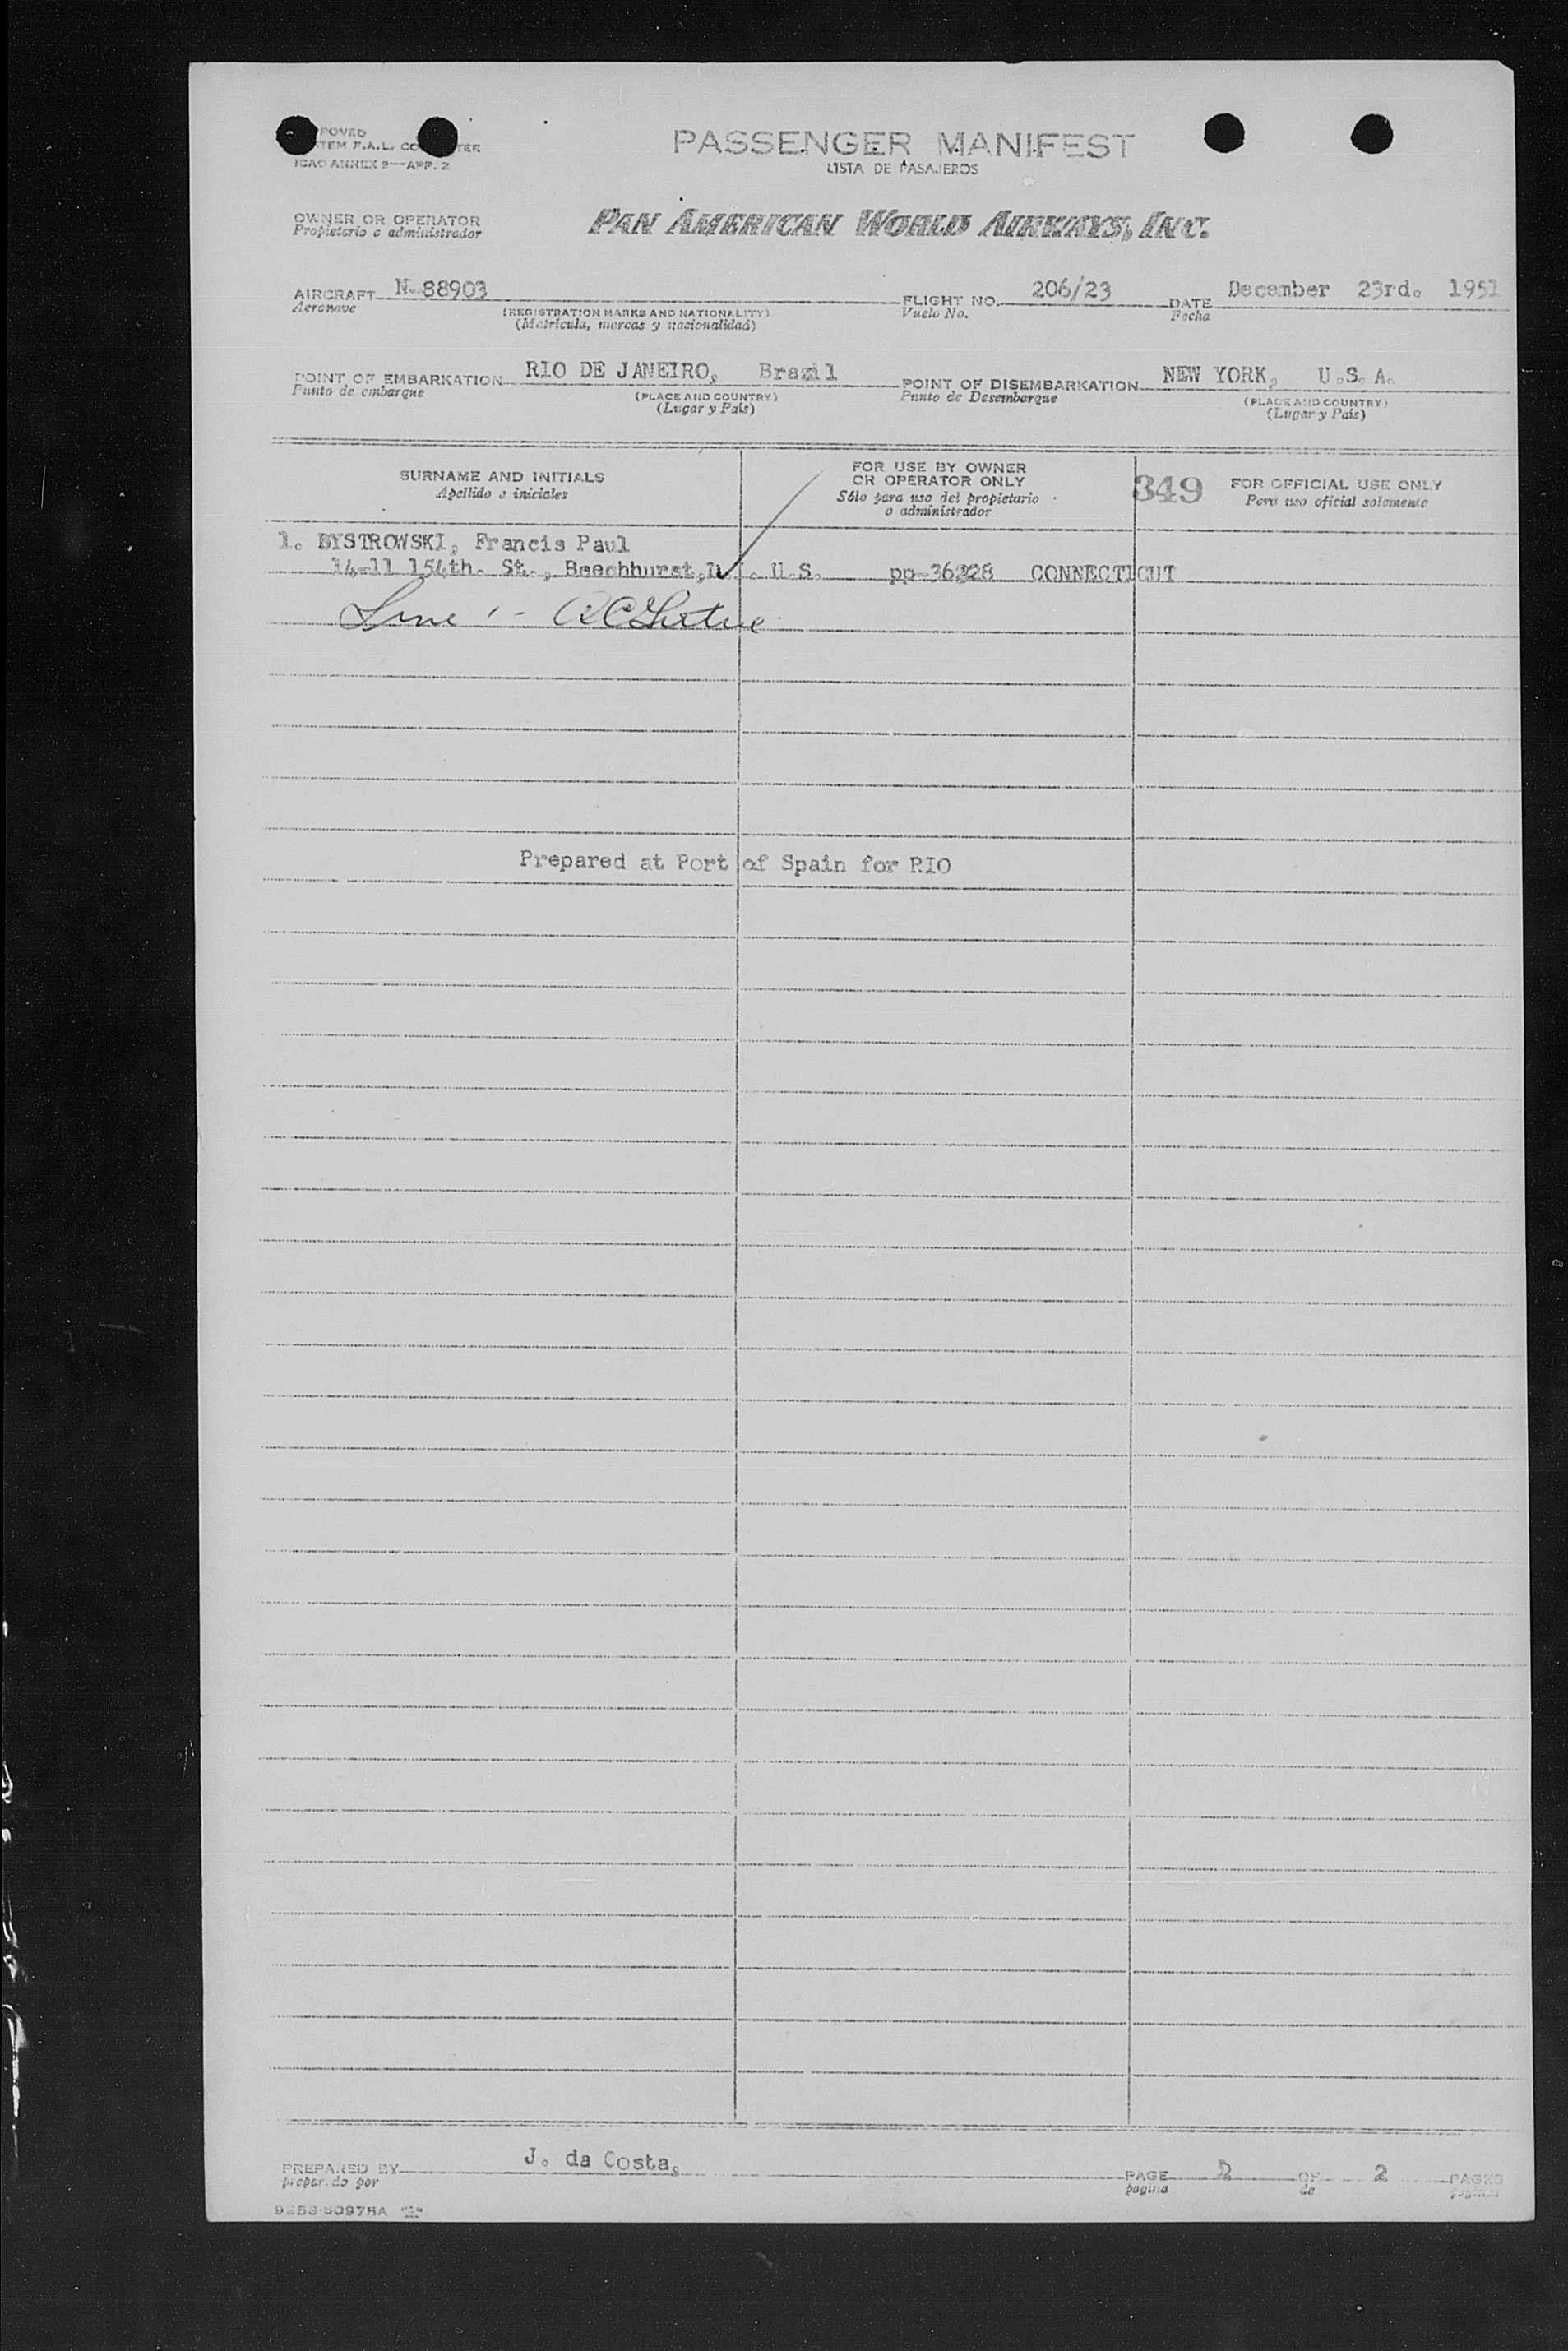 PASSENGER MANIFEST
LISTA DE PASAJEROS
ICAO ANNEX 9—APP. 2
OWNER OR OPERATOR
Propietario o administrador
PAN AMERICAN WORLD AIRWAYS, INC.
AIRCRAFT N-88903 FLIGHT NO. 206/23 DATE December 23rd. 1951
Aeronave (REGISTRATION MARKS AND NATIONALITY) Vuelo No. Fecha
(Matrícula, marcas y nacionalidad)
POINT OF EMBARKATION RIO DE JANEIRO, Brazil POINT OF DISEMBARKATION NEW YORK, U.S.A.
Punto de embarque (PLACE AND COUNTRY) Punto de Desembarque (PLACE AND COUNTRY)
(Lugar y País) (Lugar y País)
SURNAME AND INITIALS
Apellido e iniciales
FOR USE BY OWNER
OR OPERATOR ONLY
Sólo para uso del propietario
o administrador
349 FOR OFFICIAL USE ONLY
Para uso oficial solamente
1. BYSTROWSKI, Francis Paul
14-11 154th. St., Beechhurst, U.S. CONNECTICUT
Prepared at Port of Spain for RIO
PREPARED BY J. da Costa,
preparado por
PAGE 2 OF 2 PAGES
pagina de paginas